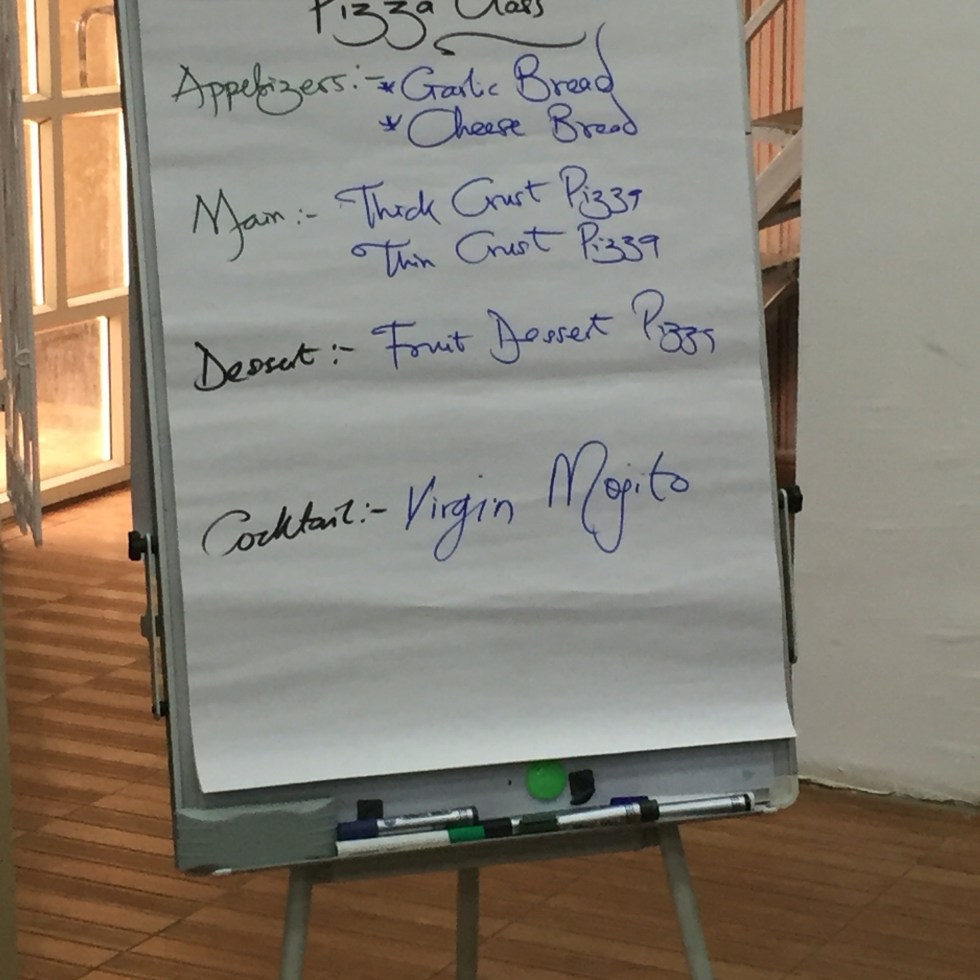 Pizza Class
Appetizers:- * Garlic Bread
* Cheese Bread
Main:- Thick Crust Pizza
Thin Crust Pizza
Dessert:- Fruit Dessert Pizza
Cocktail:- Virgin Mojito